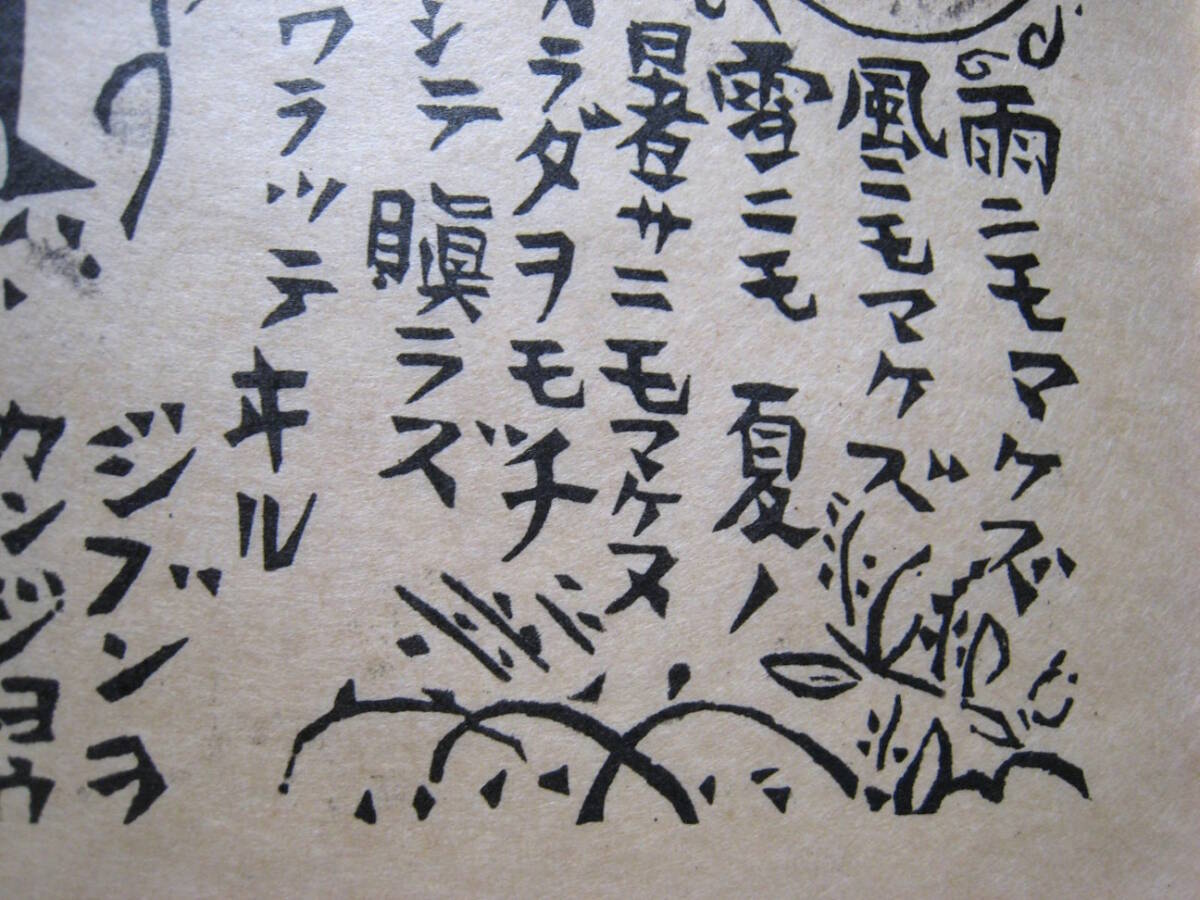 雨ニモマケズ
風ニモマケズ
雪ニモ 夏ノ
暑サニモマケヌ
カラダヲモチ
シテ 瞋ラズ
ワラッテヰル
ジブンヲ
カンジョウ